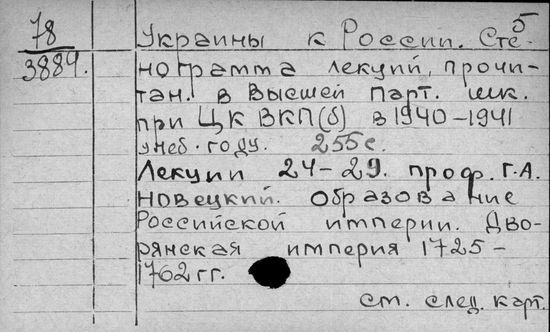 5
78
3889.
Украины к России. Сте-
нограмма лекций, прочи-
тан. в Высшей парт. шк.
при ЦК ВКП(б) в 1940-1941
учеб. году. 255 с.
Лекции 24-29. проф. Г.А.
Новецкий. Образование
Российской империи. Дво-
рянская империя 1725-
1762 гг.
см. след. карт.